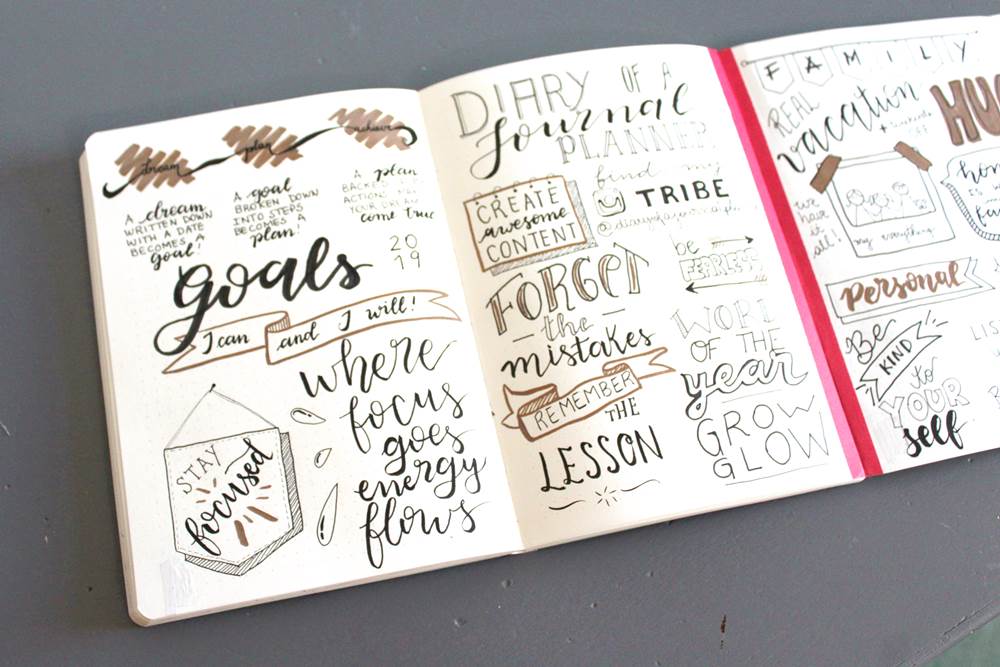 dream
plan
achieve
A dream
WRITTEN DOWN
WITH A DATE
BECOMES A
goal
A goal
BROKEN DOWN
INTO STEPS
BECOMES A
plan!
A plan
BACKED BY
ACTION
YOUR DREAM
come true
goals
20
19
I can and I will!
where
focus
goes
energy
flows
STAY
focused
DIARY OF A
Journal
PLANNER
CREATE
awesome
CONTENT
find my
TRIBE
FORGET
the
mistakes
REMEMBER
THE
LESSON
be
FEARLESS
WORD
OF THE
year
GROW
GLOW
FAMILY
REAL
vacation
we
have
it
all!
my everything
personal
Be
KIND
to
YOUR
self